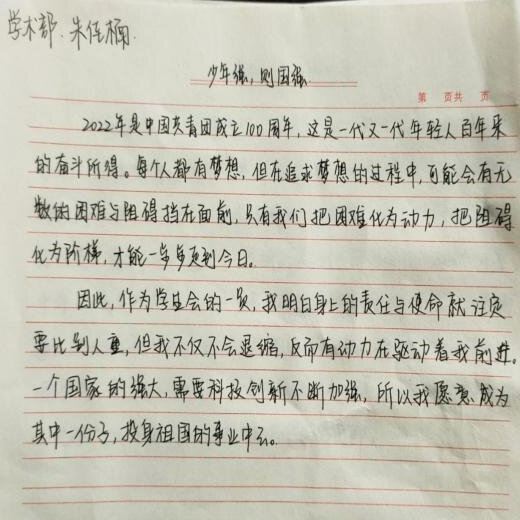 学术部.朱佳楠
少年强,则国强.
第 页共 页
2022年是中国共青团成立100周年,这是一代又一代年轻人百年来
的奋斗所得。每个人都有梦想,但在追求梦想的过程中,可能会有无
数的困难与阻碍挡在面前,只有我们把困难化为动力,把阻碍
化为阶梯,才能一步步走到今日。
因此,作为学生会的一员,我明白身上的责任与使命就注定
要比别人重,但我不仅不会退缩,反而有动力在驱动着我前进。
一个国家的强大,需要科技创新不断加强,所以我愿意成为
其中一份子,投身祖国的事业中去。